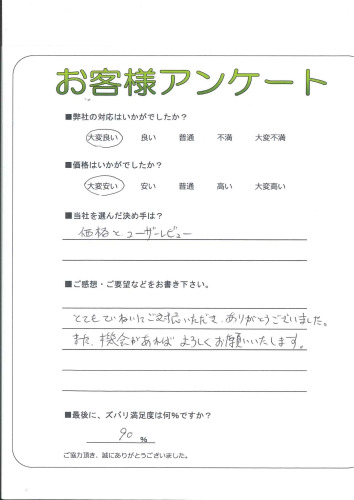 お客様アンケート
■弊社の対応はいかがでしたか？
大変良い 良い 普通 不満 大変不満
■価格はいかがでしたか？
大変安い 安い 普通 高い 大変高い
■当社を選んだ決め手は？
価格と、ユーザーレビュー
■ご感想・ご要望などをお書き下さい。
とてもていねいにご対応いただき、ありがとうございました。
また、機会があれば よろしくお願いいたします。
■最後に、ズバリ満足度は何%ですか？
90 %
ご協力頂き、誠にありがとうございました。